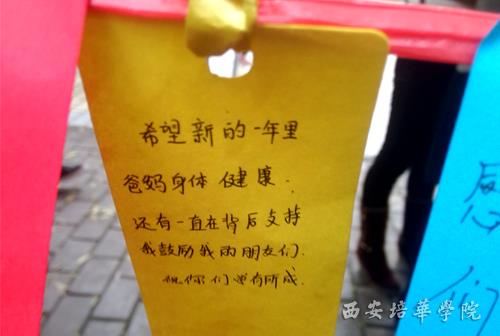 希望新的一年里
爸妈身体健康.
还有一直在背后支持
我鼓励我的朋友们.
祝你们学有所成.
感
们
西安培華学院